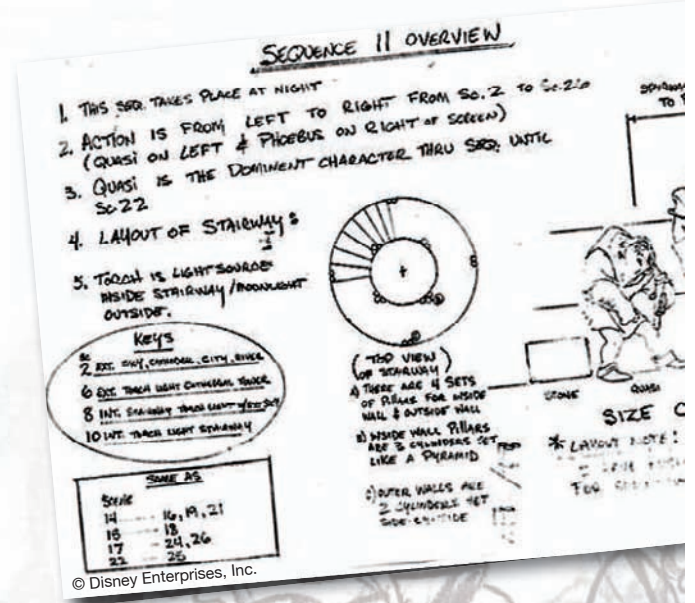 SEQUENCE 11 OVERVIEW
1. THIS SEQ. TAKES PLACE AT NIGHT
2. ACTION IS FROM LEFT TO RIGHT FROM SC. 2 TO SC. 26
(QUASI ON LEFT & PHOEBUS ON RIGHT OF SCREEN)
3. QUASI IS THE DOMINENT CHARACTER THRU SEQ. UNTIL
SC. 22
4. LAYOUT OF STAIRWAY:
5. TORCH IS LIGHT SOURCE
INSIDE STAIRWAY/MOONLIGHT
OUTSIDE.
KEYS
SC
2 EXT. SKY, CATHEDRAL, CITY, RIVER
6 EXT. TORCH LIGHT CATHEDRAL TOWER
8 INT. STAIRWAY TORCH LIGHT
10 INT. TORCH LIGHT STAIRWAY
SAME AS
SCENE
14 ---- 16, 19, 21
15 --- 18
17 --- 24, 26
22 --- 25
(TOP VIEW)
OF STAIRWAY
A) THERE ARE 4 SETS
OF PILLARS FOR INSIDE
WALL & OUTSIDE WALL
B) INSIDE WALL PILLARS
ARE 3 CYLINDERS SET
LIKE A PYRAMID
C) OUTER WALLS ARE
2 CYLINDERS SET
SIDE-BY-SIDE
TO
STONE
QUASI
SIZE C
* LAYOUT NOTE:
FOR
© Disney Enterprises, Inc.